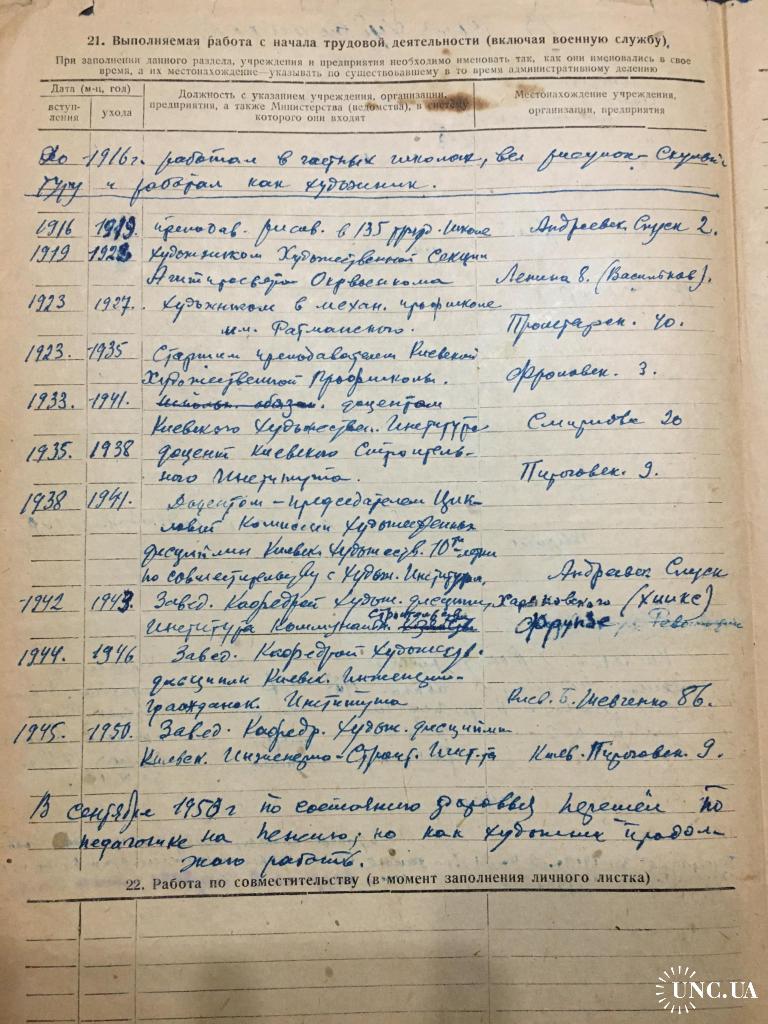 21. Выполняемая работа с начала трудовой деятельности (включая военную службу),
При заполнении данного раздела, учреждения и предприятия необходимо именовать так, как они именовались в свое
время, а их местонахождение—указывать по существовавшему в то время административному делению
Дата (м-ц, год)
вступ-
ления
ухода
Должность с указанием учреждения, организации,
предприятия, а также Министерства (ведомства), в систему
которого они входят
Местонахождение учреждения,
организации, предприятия
До 1916 г. работал в частных школах, вел рисунок Скульп-
туру и работал как художник.
1916 1919 преподав. рисов. в 135 труд. школе Андреевск. Спуск 2.
1919 1923 художником Художественной Секции
Агитпросвета Окрвоенкома Ленина 8. (Васильков).
1923 1927. художником в механ. профшколе
им. Ратманского. Пролетарск. 40.
1923. 1935 Старшим преподавателем Киевской
Художественной Профшколы. Фроловск. 3.
1933. 1941. доцентом
Киевского Художествен. Института Смирнова 20
1935. 1938 доцент Киевского Строитель-
ного Института. Пироговск. 9.
1938 1941. Доцентом – председателем Цик-
ловой Комиссии художественных
дисциплин Киевск. Художеств. 10ти летки
по совместительству с Худож. Института. Андреевск. Спуск
1942 1943. Завед. Кафедрой Худож. дисциплин Харьковского (ХИИКС)
Института Коммунальн. строительства Фрунзе
1944. 1946 Завед. Кафедрой Художеств.
дисциплин Киевск. Инженерно-
гражданск. Института Киев. Б. Шевченко 86.
1945. 1950. Завед. Кафедр. Худож. дисциплин
Киевск. Инженерно-Строит. Инст-та Киев. Пироговск. 9.
В сентябре 1950 г по состоянию здоровья перешел по
педагогике на пенсию, но как художник продол-
жаю работать.
22. Работа по совместительству (в момент заполнения личного листка)
UNC.UA